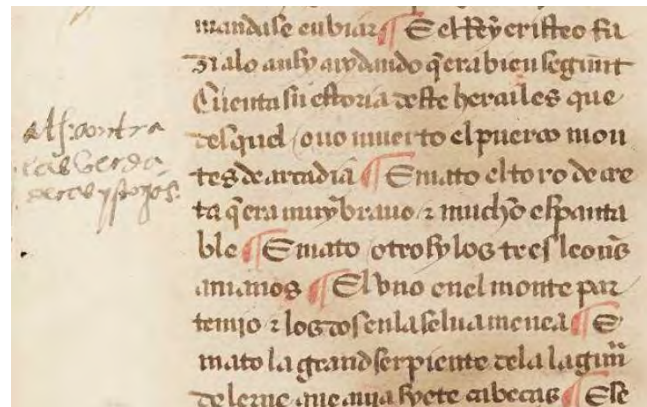 mandase enbiar ¶ E el Rey eristeo fa
zia lo ansy cuydando q̃ era bien segunt
Cuenta su estoria deste hercules que
des quel ouo muerto el puerco mon
tes de arcadia ¶ E mato el toro de cre
ta q̃ era muy brauo ⁊ mucho espanta
ble ¶ E mato otrosy los tres leons
¶ El vno en el monte par
temio ⁊ los dos en la selua menea ¶ E
mato la grand serpiente de la lagun
de lerne que auia syete cabeças ¶ E se
contra
las verda-
deras ystorias.